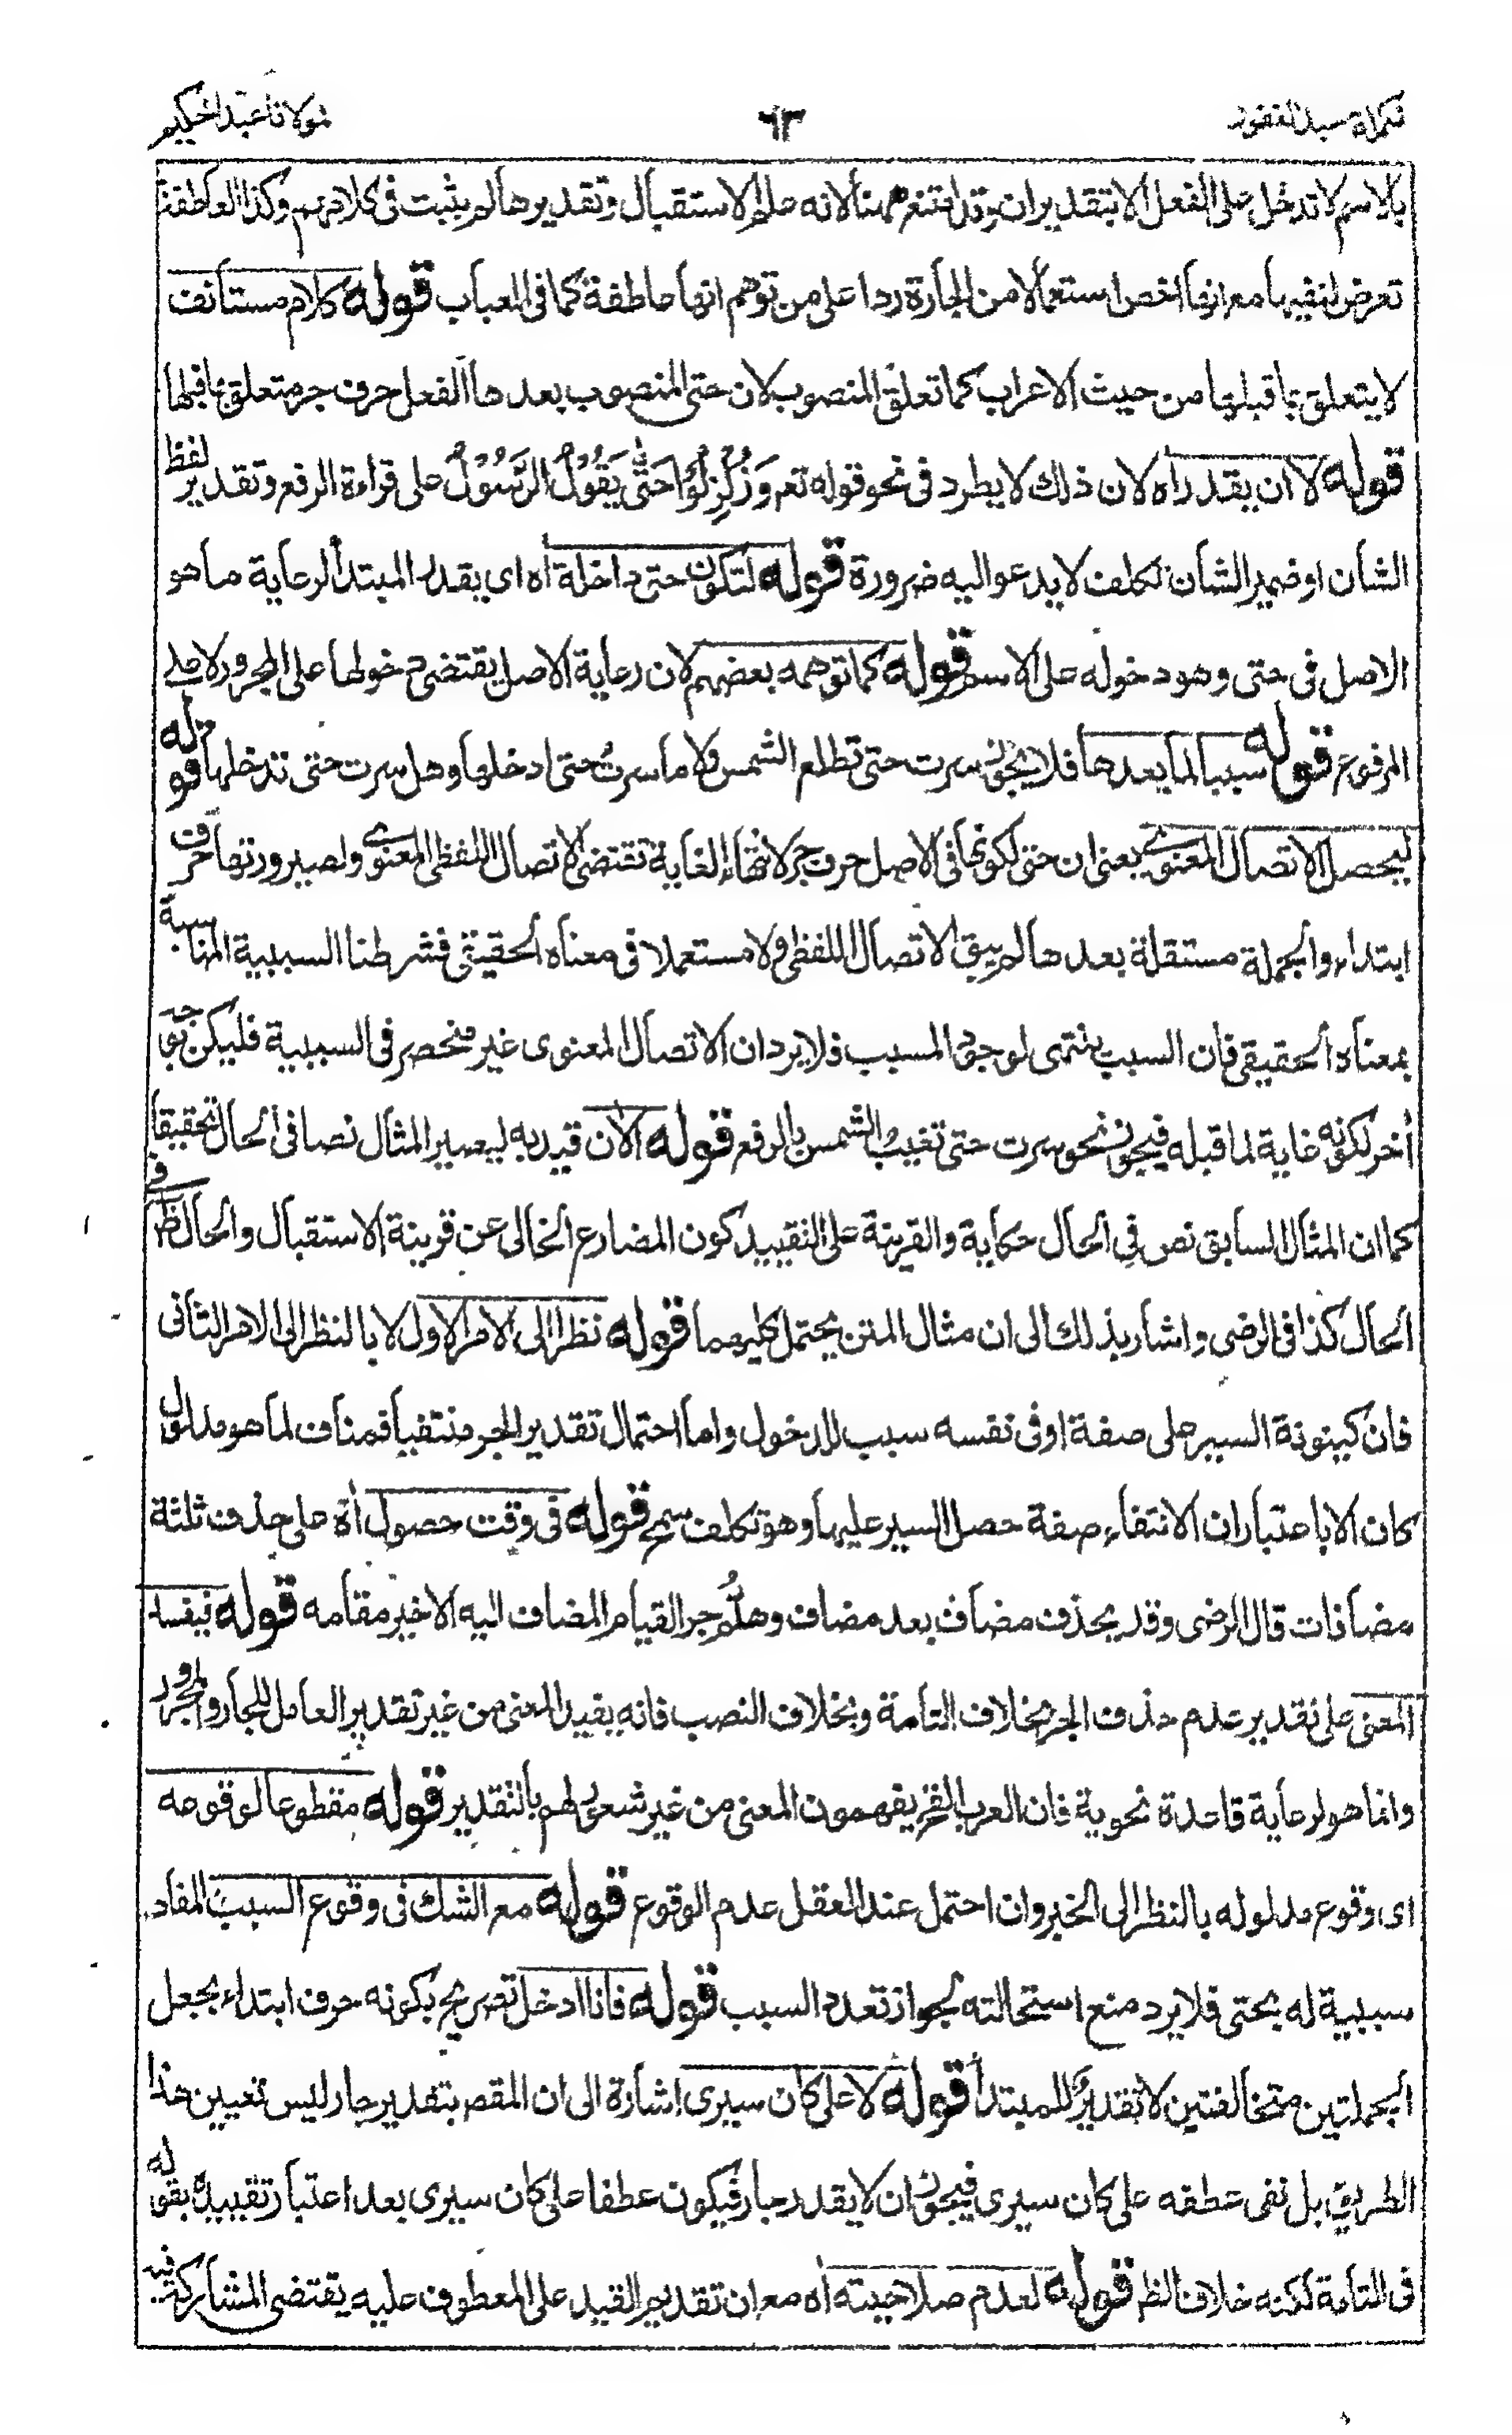 تكملة عبد الغفور
٦٣
مولانا عبد الحكيم
بالاسم لا تدخل على الفعل الا بتقديران وقد امتنع ههنا لانه علم الاستقبال وتقديرها لم يثبت فى كلامهم وكذا العاطفة
تعرض لنفيها مع انها اخص استعمالا من الجارة ردا على من توهم انها عاطفة كما فى العباب قوله كلام مستأنف
لا يتعلق بما قبلها من حيث الاعراب كما تعلق المنصوب لان حتى المنصوب بعدها الفعل حرف جر متعلق بما قبلها
قوله لا ان يقدر اه لان ذلك لا يطرد فى نحو قوله تعم وَزُلْزِلُوا حَتّٰى يَقُوْلُ الرَّسُوْلُ على قراءة الرفع وتقدير لفظ
الشأن او ضمير الشأن تكلف لا يدعو اليه ضرورة قوله لتكون حتى داخلة اه اى يقدر المبتدأ لرعاية ما هو
الاصل فى حتى وهو دخوله على الاسم قوله كما توهمه بعضهم لان رعاية الاصل يقتضى دخولها على المجرور لا على
المرفوع قوله سببا لما بعدها فلا يجوز سرت حتى تطلع الشمس ولا ما سرت حتى ادخلها وهل سرت حتى تدخلها قوله
ليحصل الاتصال المعنوى يعنى ان حتى لكونها فى الاصل حرف جر لانتهاء الغاية تقتضى الاتصال اللفظى المعنوى ولصيرورتها حرف
ابتداء والجملة مستقلة بعدها لم يبق الاتصال اللفظى ولا مستعملا فى معناه الحقيقى فشرطنا السببية المناسبة
بمعناه الحقيقى فان السبب ينتهى لوجود المسبب فلا يرد ان الاتصال المعنوى غير منحصر فى السببية فليكن بوجه
أخر لكونه غاية لما قبله فيجوز نحو سرت حتى تغيب الشمس بالرفع قوله الآن قيد به ليصير المثال نصا فى الحال تحقيقا
كما ان المثال السابق نص فى الحال حكاية والقرينة على التقييد كون المضارع الخالى عن قرينة الاستقبال والحال ظ فى
الحال كذا فى الرضى واشار بذلك الى ان مثال المتن يحتمل كليهما قوله نظرا الى الامر الاول لا بالنظر الى الامر الثانى
فان كينونة السير على صفة او فى نفسه سبب للدخول واما احتمال تقدير الجر منتفيا فمناف لما هو مدلول
كان الا باعتبار ان الانتفاء صفة حصل السير عليها وهو تكلف سمج قوله فى وقت حصول اه على حذف ثلثة
مضافات قال الرضى وقد يحذف مضاف بعد مضاف وهلُمَّ جرا لقيام المضاف اليه الاخير مقامه قوله بنفسه
المعنى على تقدير عدم حذف الجر بخلاف التامة وبخلاف النصب فانه يفيد المعنى من غير تقدير العامل للجار والمجرور
وانما هو لرعاية قاعدة نحوية فان العرب القح يفهمون المعنى من غير شعور لهم بالتقدير قوله مقطوعا لوقوعه
اى وقوع مدلوله بالنظر الى الخبر وان احتمل عند العقل عدم الوقوع قوله مع الشك فى وقوع السبب المفاد
سببية له بحتى فلا يرد منع استحالته لجواز تعدد السبب قوله فانا ادخل تصريح بكونه حرف ابتداء بجعل
الجملتين متخالفتين لا تقدير للمبتدأ قوله لا على كان سيرى اشارة الى ان المقص بتقدير جار ليس تعيين هذا
الطريق بل نفى عطفه على كان سيرى فيجوز ان لا يقدر جار فيكون عطفا على كان سيرى بعد اعتبار تقييده بقوله
فى التامة لكنه خلاف الظ قوله لعدم صلاحيته اه مع ان تقدير القيد على المعطوف عليه يقتضى المشاركة فيه